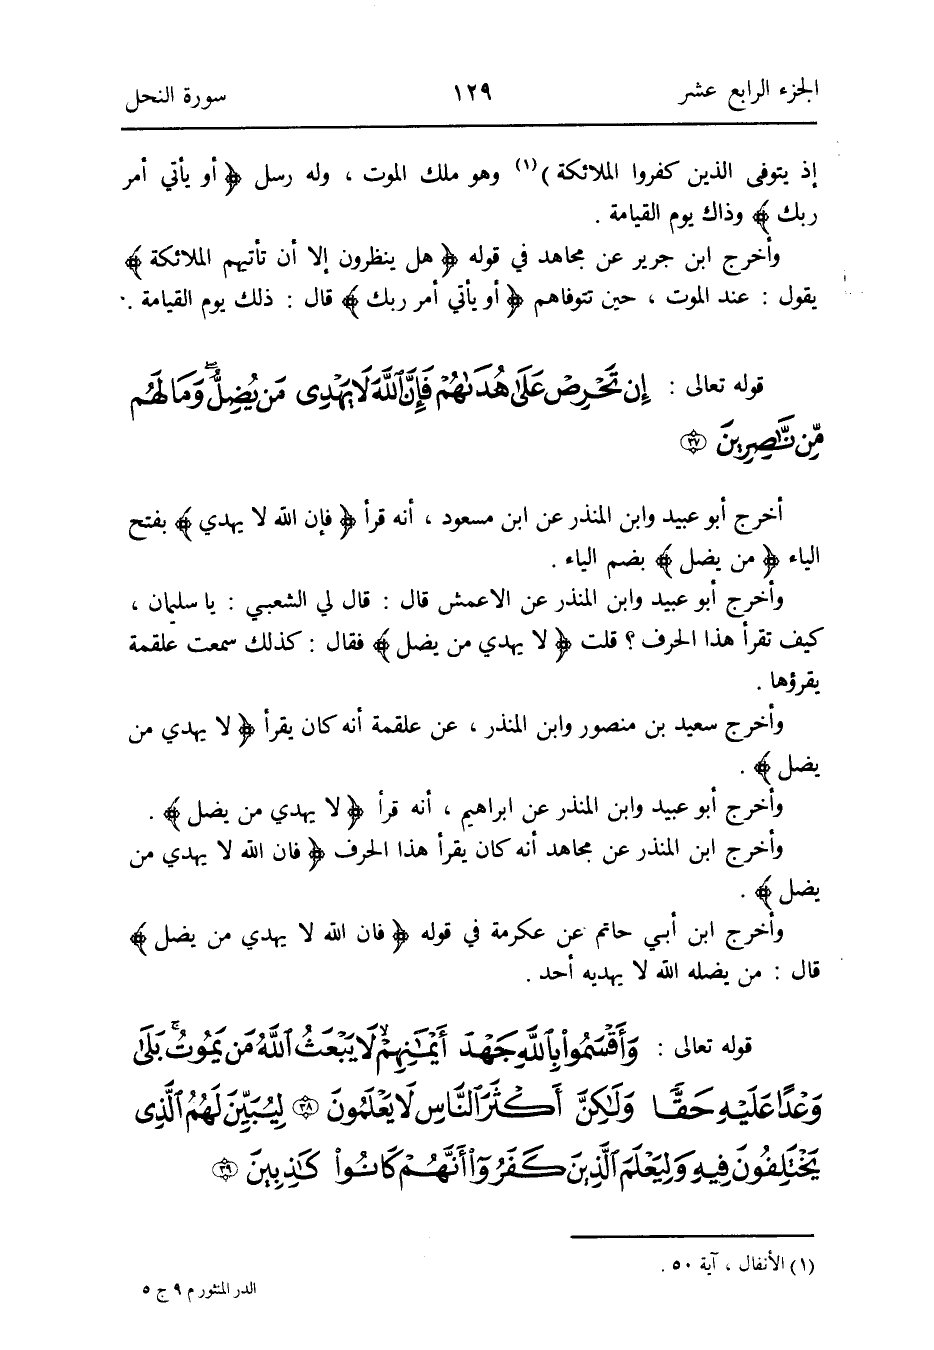 الجزء الرابع عشر ١٢٩ سورة النحل
إذ يتوفى الذين كفروا الملائكة )(١) وهو ملك الموت ، وله رسل ﴿ أو يأتي أمر
ربك ﴾ وذاك يوم القيامة .
وأخرج ابن جرير عن مجاهد في قوله ﴿ هل ينظرون إلا أن تأتيهم الملائكة ﴾
يقول : عند الموت ، حين تتوفاهم ﴿ أو يأتي أمر ربك ﴾ قال : ذلك يوم القيامة .
قوله تعالى : إِن تَحْرِصْ عَلَىٰ هُدَىٰهُمْ فَإِنَّ ٱللَّهَ لَا يَهْدِى مَن يُضِلُّ ۖ وَمَا لَهُم
مِّن نَّٰصِرِينَ ﴿٣٧﴾
أخرج أبو عبيد وابن المنذر عن ابن مسعود ، أنه قرأ ﴿ فإن الله لا يهدي ﴾ بفتح
الياء ﴿ من يضل ﴾ بضم الياء .
وأخرج أبو عبيد وابن المنذر عن الاعمش قال : قال لي الشعبي : يا سليمان ،
كيف تقرأ هذا الحرف ؟ قلت ﴿ لا يهدي من يضل ﴾ فقال : كذلك سمعت علقمة
يقرؤها .
وأخرج سعيد بن منصور وابن المنذر ، عن علقمة أنه كان يقرأ ﴿ لا يهدي من
يضل ﴾ .
وأخرج أبو عبيد وابن المنذر عن ابراهيم ، أنه قرأ ﴿ لا يهدي من يضل ﴾ .
وأخرج ابن المنذر عن مجاهد أنه كان يقرأ هذا الحرف ﴿ فان الله لا يهدي من
يضل ﴾ .
وأخرج ابن أبي حاتم عن عكرمة في قوله ﴿ فان الله لا يهدي من يضل ﴾
قال : من يضله الله لا يهديه أحد .
قوله تعالى : وَأَقْسَمُوا۟ بِٱللَّهِ جَهْدَ أَيْمَٰنِهِمْ ۙ لَا يَبْعَثُ ٱللَّهُ مَن يَمُوتُ ۚ بَلَىٰ
وَعْدًا عَلَيْهِ حَقًّا وَلَٰكِنَّ أَكْثَرَ ٱلنَّاسِ لَا يَعْلَمُونَ ﴿٣٨﴾ لِيُبَيِّنَ لَهُمُ ٱلَّذِى
يَخْتَلِفُونَ فِيهِ وَلِيَعْلَمَ ٱلَّذِينَ كَفَرُوٓا۟ أَنَّهُمْ كَانُوا۟ كَٰذِبِينَ ﴿٣٩﴾
(١) الأنفال ، آية ٥٠ .
الدر المنثور م ٩ ج ٥